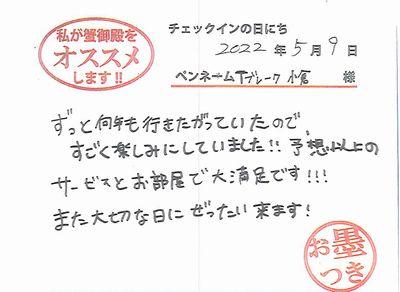 私が蟹御殿を
オススメ
します!!
チェックインの日にち
2022年5月9日
ペンネーム Tブレーク 小倉 様
ずっと何年も行きたがっていたので、
すごく楽しみにしていました!! 予想以上の
サービスとお部屋で大満足です!!!
また大切な日にぜったい来ます!
お墨
つき